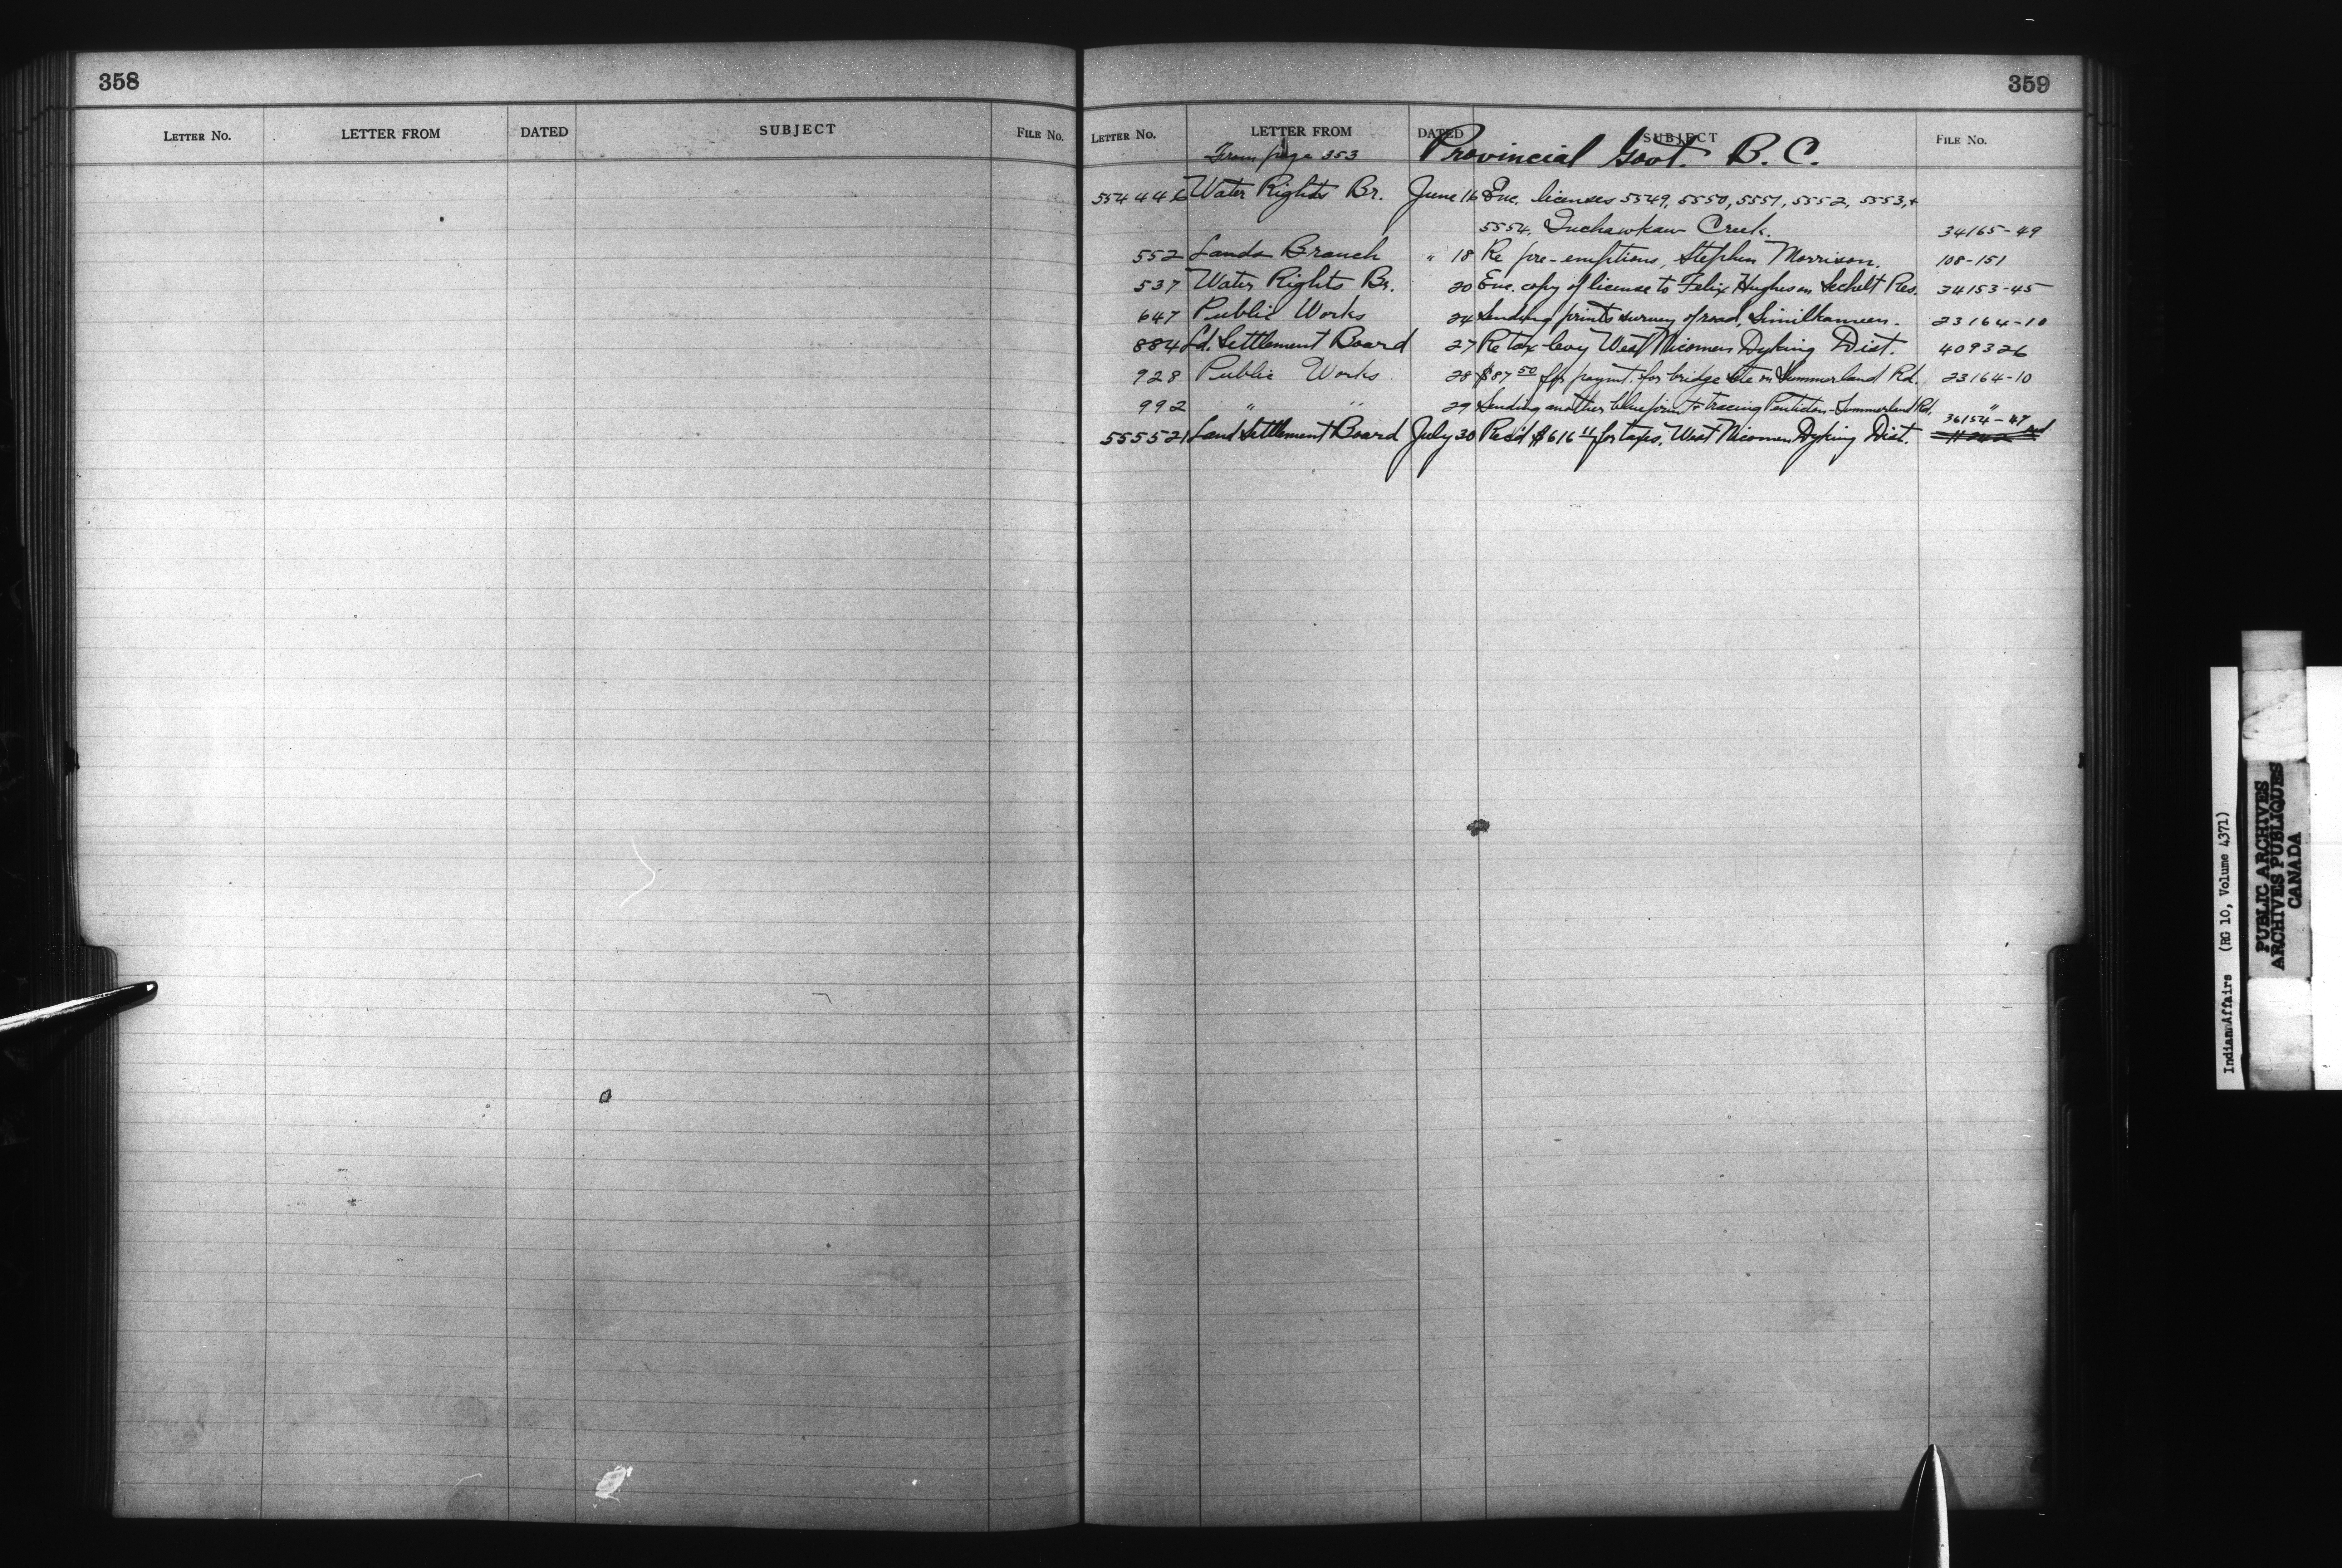 358
LETTER NO. LETTER FROM DATED SUBJECT FILE NO.
359
LETTER NO. LETTER FROM DATED SUBJECT FILE NO.
From page 353 Provincial Govt. B. C.
554446 Water Rights Br. June 16 Enc. licenses 5549, 5550, 5551, 5552, 5553, +
5554, Inchawkaw Creek. 34165-49
552 Lands Branch " 18 Re pre-emptions, Stephen Morrison. 108-151
537 Water Rights Br. 20 Enc. copy of license to Felix Hughes on Sechelt Res. 34153-45
647 Public Works 24 Sending prints survey of road, Similkameen. 23164-10
884 Ld. Settlement Board 27 Re tax levy West Nicomen Dyking Dist. 409326
928 Public Works 28 $87 50 for paymt. for bridge site on Summerland Rd. 23164-10
992 " " 29 Sending another blueprint + tracing Penticton-Summerland Rd. "
555521 Land Settlement Board July 30 Rec'd $616 11 for taxes, West Nicomen Dyking Dist. 36154-47
Indian Affairs (RG 10, Volume 4371)
PUBLIC ARCHIVES
ARCHIVES PUBLIQUES
CANADA